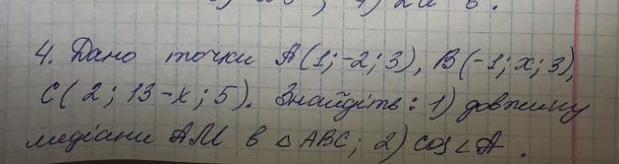 4. Дано точки A(1;-2;3), B(-1;x;3),
C(2;13-x;5). Знайдіть: 1) довжину
медіани AM в △ABC; 2) cos∠A.